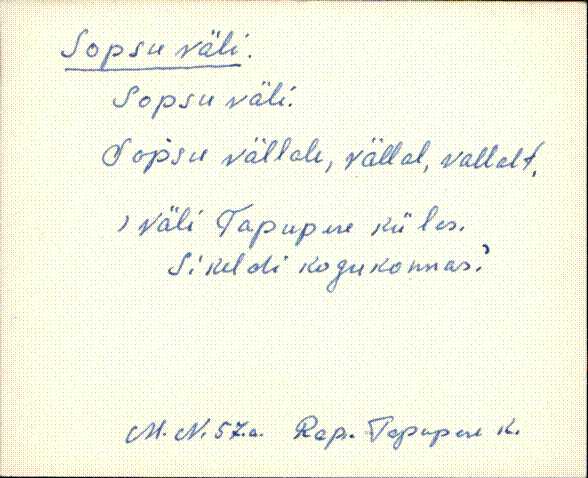 Sopsu väli.
Sopsu väli.
Sopsu vällale, vällal, vallalt,
, väli Tapupere külas.
Sikeldi kogukonnas.
M. N. 57.a. Rap. Tapupere k.